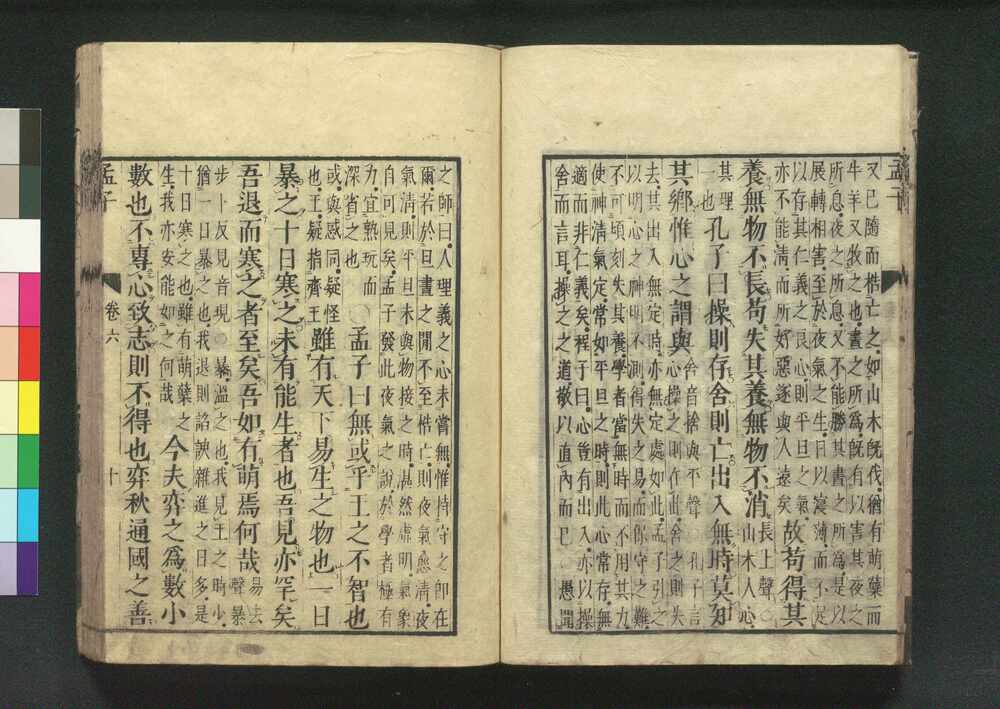 孟子
又已隨而梏亡之如山木既伐猶有萌蘖而
牛羊又牧之也晝之所爲既有以害其夜之
所息夜之所息又不能勝其晝之所爲是以
展轉相害至於夜氣之生日以寖薄而不足
以存其仁義之良心則平旦之氣
亦不能清而所好惡遂與人遠矣 故苟得其
養無物不長苟失其養無物不消 長上聲○
山木人心
其理
一也 孔子曰操則存舍則亡出入無時莫知
其鄕惟心之謂與 舍音捨與平聲○孔子言
心操之則在此舍之則失
去其出入無定時亦無定處如此孟子引之
以明心之神明不測得失之易而保守之難
不可頃刻失其養學者當無時而不用其力
使神淸氣定常如平旦之時則此心常存無
適而非仁義矣程子曰心豈有出入亦以操
舍而言耳操之之道敬以直內而已○愚聞
之師曰人理義之心未嘗無惟持守之卽在
爾若於旦晝之閒不至梏亡則夜氣愈淸夜
氣淸則平旦未與物接之時湛然虛明氣象
自可見矣孟子發此夜氣之說於學者極有
力宜熟玩而
深省之也 ○孟子曰無或乎王之不智也
或與惑同疑怪
也王疑指齊王 雖有天下易生之物也一日
暴之十日寒之未有能生者也吾見亦罕矣
吾退而寒之者至矣吾如有萌焉何哉 易去
聲暴
步卜反見音現○暴溫之也我見王之時少
猶一日暴之也我退則諂諛雜進之日多是
十日寒之也雖有萌蘖之
生我亦安能如之何哉 今夫弈之爲數小
數也不專心致志則不得也弈秋通國之善
孟子 卷六 十